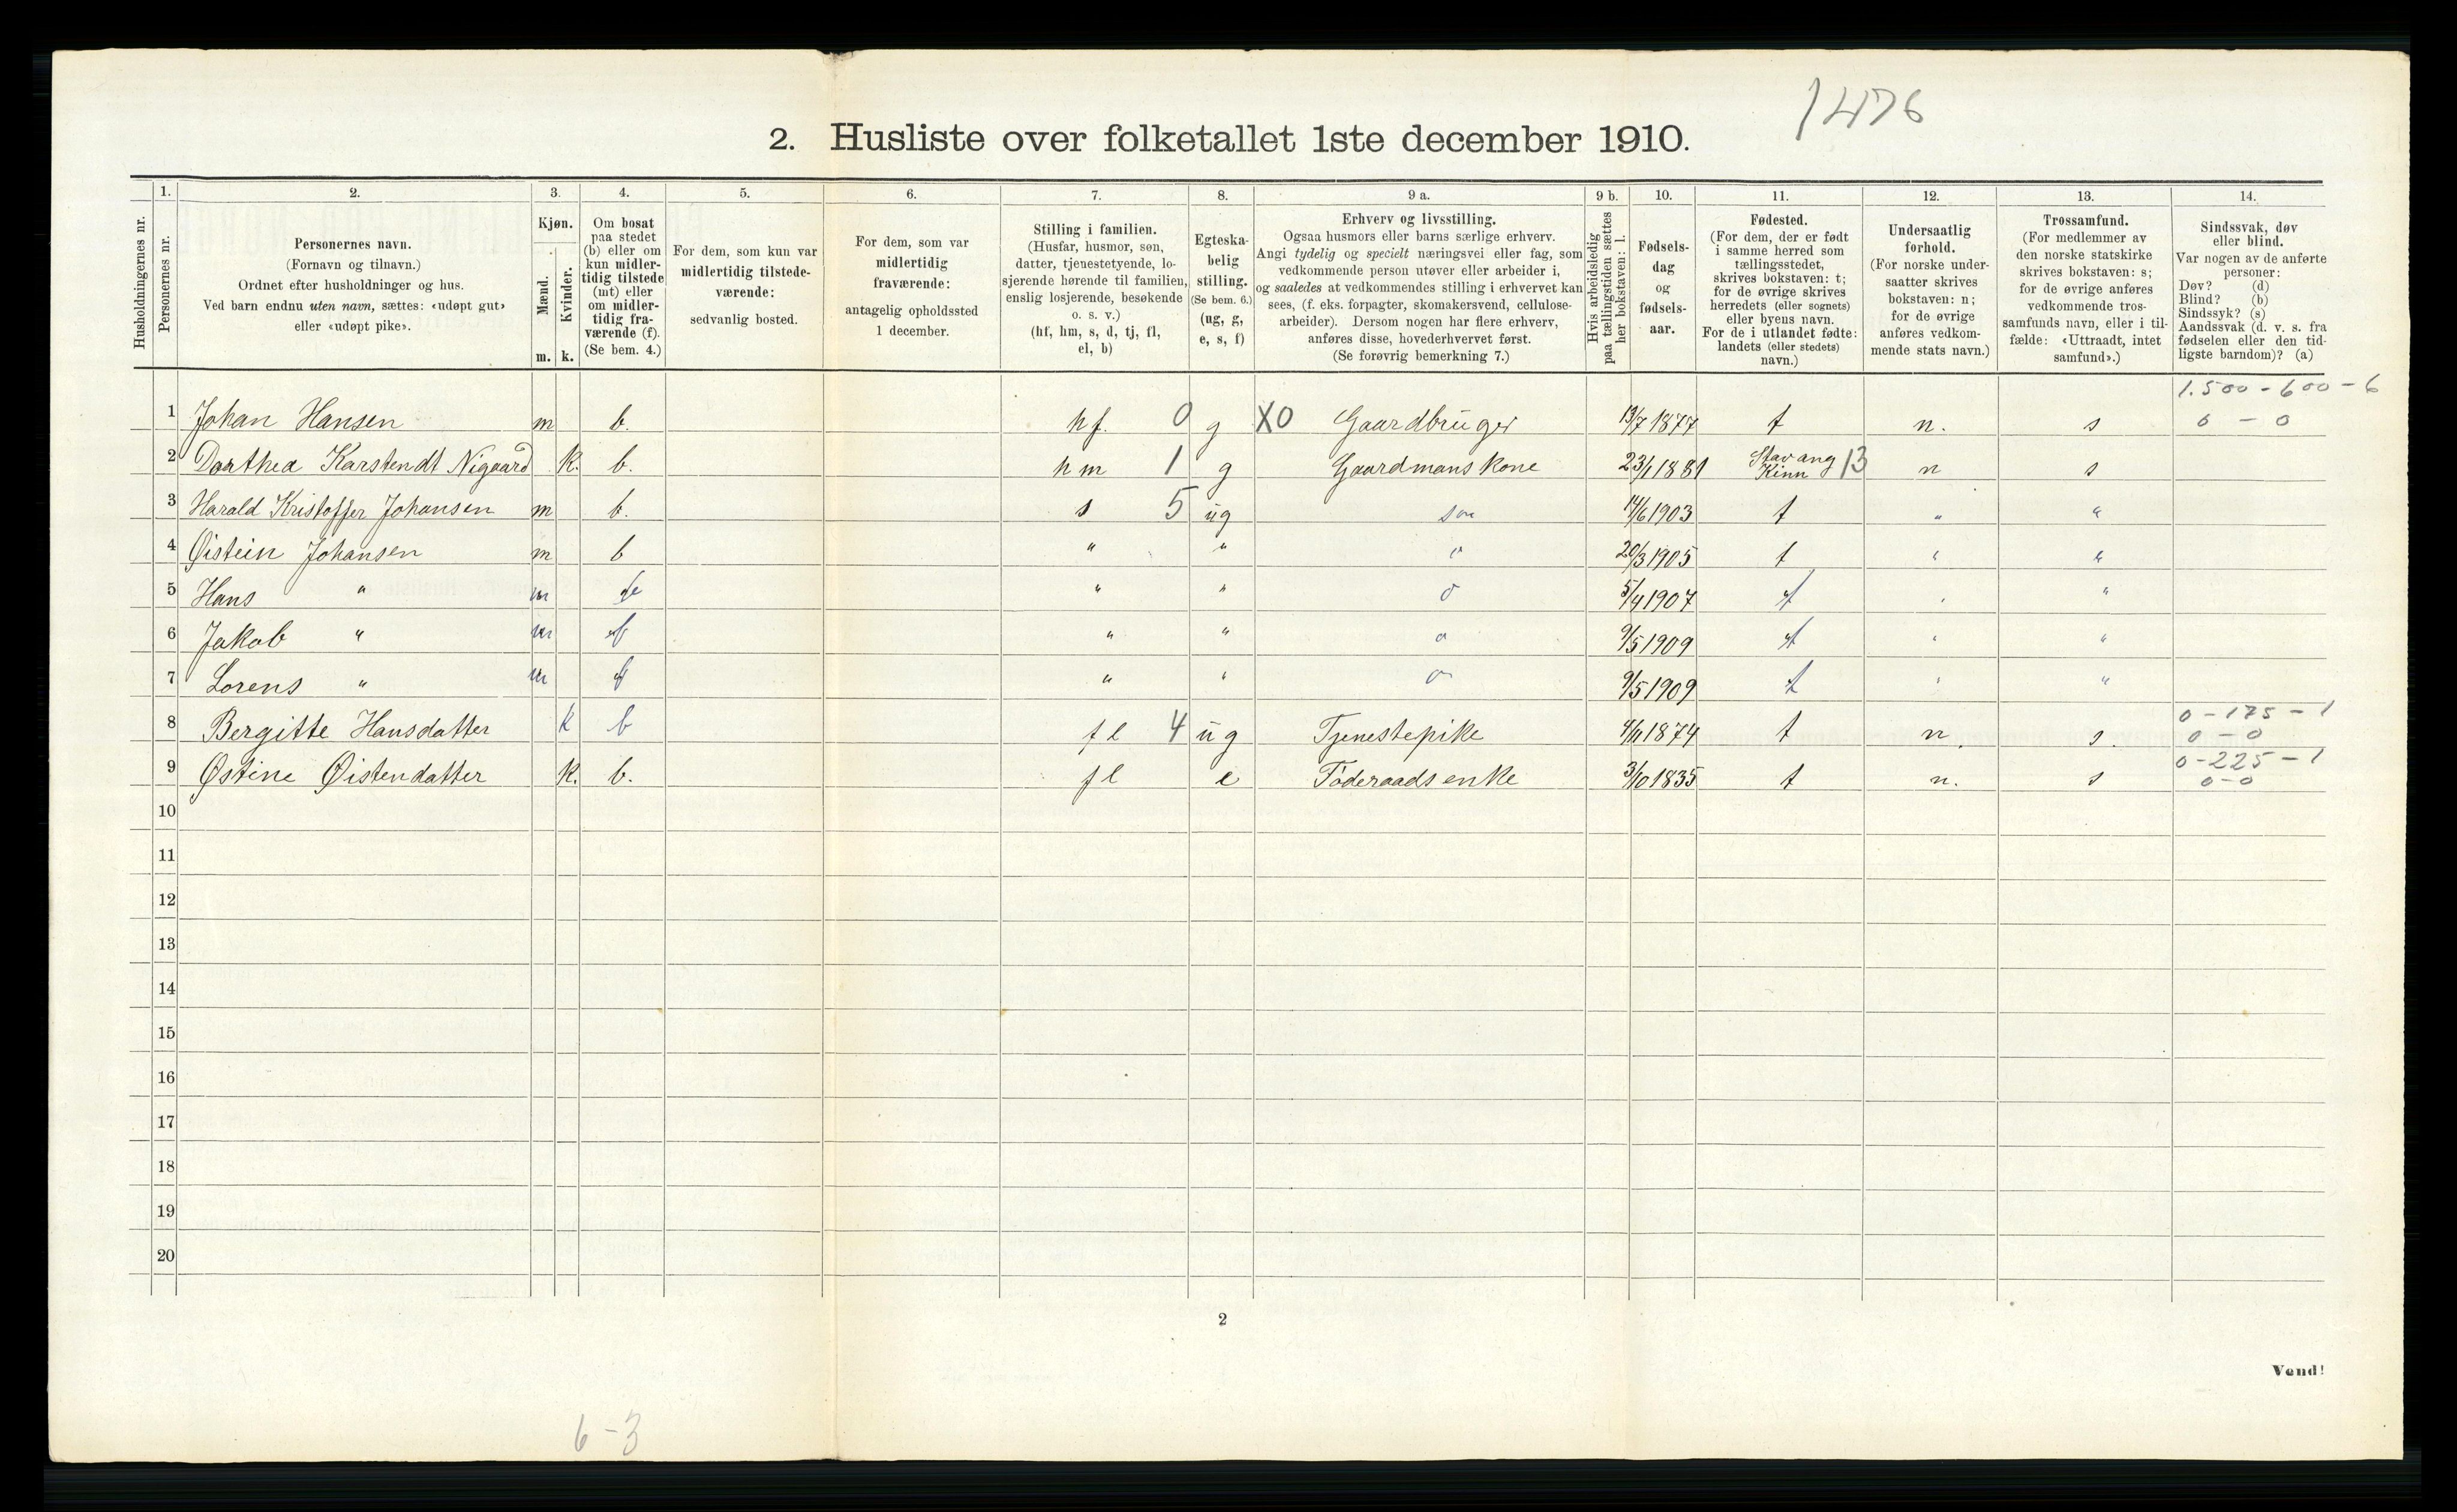 1476
2. Husliste over folketallet 1ste december 1910.
Husholdningernes nr.
1.
Personernes nr.
2.
Personernes navn.
(Fornavn og tilnavn.)
Ordnet efter husholdninger og hus.
Ved barn endnu uten navn, sættes: «udøpt gut»
eller «udøpt pike».
3.
Kjøn.
Mænd.
Kvinder.
m. k.
4.
Om bosat
paa stedet
(b) eller om
kun midler-
tidig tilstede
(mt) eller
om midler-
tidig fra-
værende (f).
(Se bem. 4.)
5.
For dem, som kun var
midlertidig tilstede-
værende:
sedvanlig bosted.
6.
For dem, som var
midlertidig
fraværende:
antagelig opholdssted
1 december.
7.
Stilling i familien.
(Husfar, husmor, søn,
datter, tjenestetyende, lo-
sjerende hørende til familien,
enslig losjerende, besøkende
o. s. v.)
(hf, hm, s, d, tj, fl,
el, b)
8.
Egteska-
belig
stilling.
(Se bem. 6.)
(ug, g,
e, s, f)
9 a.
Erhverv og livsstilling.
Ogsaa husmors eller barns særlige erhverv.
Angi tydelig og specielt næringsvei eller fag, som
vedkommende person utøver eller arbeider i,
og saaledes at vedkommendes stilling i erhvervet kan
sees, (f. eks. forpagter, skomakersvend, cellulose-
arbeider). Dersom nogen har flere erhverv,
anføres disse, hovederhvervet først.
(Se forøvrig bemerkning 7.)
9 b.
Hvis arbeidsledig
paa tællingstiden sættes
her bokstaven: l.
10.
Fødsels-
dag
og
fødsels-
aar.
11.
Fødested.
(For dem, der er født
i samme herred som
tællingsstedet,
skrives bokstaven: t;
for de øvrige skrives
herredets (eller sognets)
eller byens navn.
For de i utlandet fødte:
landets (eller stedets)
navn.)
12.
Undersaatlig
forhold.
(For norske under-
saatter skrives
bokstaven: n;
for de øvrige
anføres vedkom-
mende stats navn.)
13.
Trossamfund.
(For medlemmer av
den norske statskirke
skrives bokstaven: s;
for de øvrige anføres
vedkommende tros-
samfunds navn, eller i til-
fælde: «Uttraadt, intet
samfund».)
14.
Sindssvak, døv
eller blind.
Var nogen av de anførte
personer:
Døv? (d)
Blind? (b)
Sindssyk? (s)
Aandssvak (d. v. s. fra
fødselen eller den tid-
ligste barndom)? (a)
1.500 - 600 - 6
1 Johan Hansen m b. hf. 0 g X0 Gaardbruger 13/7 1877 t n. s 0 - 0
2 Dorthea Karstendt Nigaard k. b. hm 1 g Gaardmanskone 23/1 1881 Stavang Kinn 13 n s
3 Harald Kristoffer Johansen m b. s 5 ug søn 14/6 1903 t " "
4 Øistein Johansen m b " " o 20/3 1905 t " "
5 Hans " m b " " o 5/4 1907 t " "
6 Jakob " m b " " o 9/5 1909 t " "
7 Lorens " m b " " o 9/5 1909 t " "
0 - 175 - 1
8 Bergitte Hansdatter k b fl 4 ug Tjenestepike 4/11 1874 t n. s. 0 - 0
0 - 225 - 1
9 Østine Øistendatter k. b. fl e Føderaadsenke 3/10 1835 t n. s 0 - 0
10
11
12
13
14
15
16
17
18
19
20
2
Vend!
6 - 3